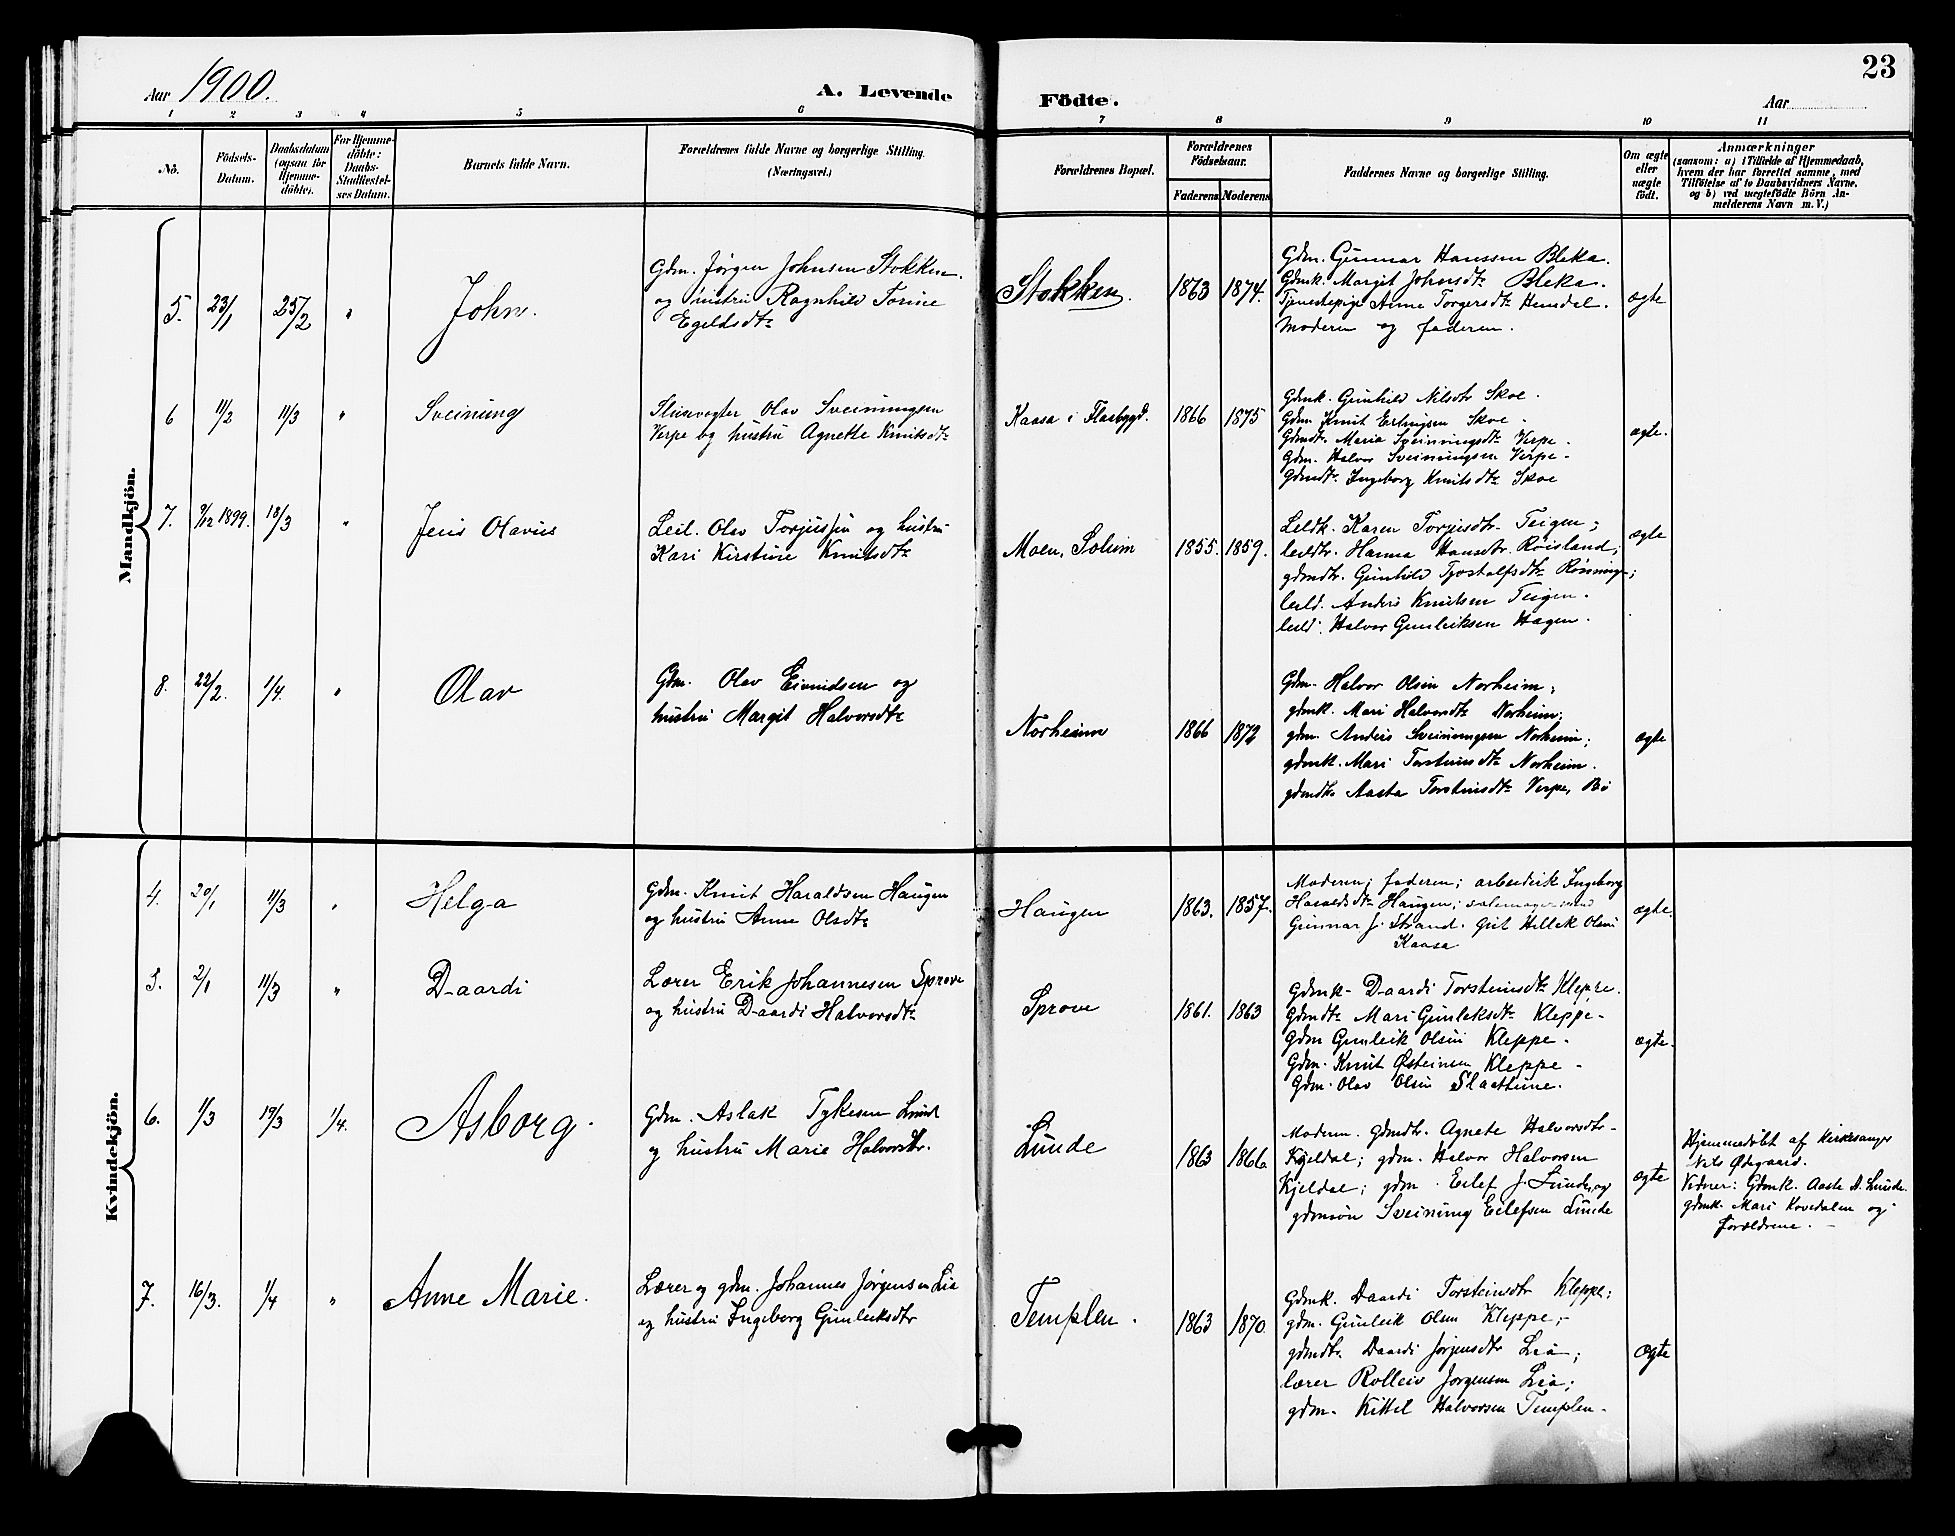 Aar 1900.
A. Levende Födte.
23
Aar
1 2 3 4 5 6 7 8 9 10 11
No.
Födsels-
Datum.
Daabsdatum
(ogsaa for
Hjemme-
döbte).
For Hjemme-
döbte:
Daabs-
Stadfæstel-
ses Datum.
Barnets fulde Navn.
Forældrenes fulde Navne og borgerlige Stilling.
(Næringsvei.)
Forældrenes Bopæl.
Forældrenes
Födselsaar.
Faderens Moderens
Faddernes Navne og borgerlige Stilling.
Om ægte
eller
uægte
födt.
Anmærkninger
(saasom: a) i Tilfælde af Hjemmedaab,
hvem der har forrettet samme, med
Tilföielse af to Daabsvidners Navne,
og b) ved uegtefödte Börn An-
melderens Navn m. V.)
Mandkjön.
5. 23/1 25/2 " John.
Gdm. Jørgen Johnsen Stokken.
og hustru Ragnhild Torine
Egeldsdtr
Stokken. 1863 1874.
Gdm. Gunnar Hanssen Bleka.
Gdmk. Margit Johnsdtr Bleka.
Tjenestepige Anne Torgersdtr Hemdal.
Moderen og faderen.
ægte
6 11/2 11/3 " Sveinung
Slusevogter Olav Sveinungsen
Verpe og hustru Agnette Knutsdtr
Kaasa i Flaabygd. 1866 1875
Gdmk. Gunhild Nilsdtr Skoe.
Gdm. Knut Erlingsen Skoe.
Gdmdtr. Maria Sveinungsdtr Verpe.
Gdm. Halvor Sveinungsen Verpe.
Gdmdtr. Ingeborg Knutsdtr Skoe
ægte.
7. 9/12 1899. 18/3 " Jens Olavus
Leil. Olav Torjussen og hustru
Kari Kirstine Knutsdtr
Moen, Solum 1855. 1859.
Leldk. Karen Torjusdtr. Teigen;
leildtr. Hanna Hansdtr. Røisland;
gdmdtr. Gunhild Tjostolfsdtr Rønninge;
leild. Anders Knutsen Teigen.
leild. Halvor Gunleiksen Hagen.
ægte
8. 22/2. 1/4. " Olav
Gdm. Olav Eivindsen og
hustru Margit Halvorsdtr
Norheim 1866 1872
Gdm. Halvor Olsen Norheim;
gdmk. Mari Halvorsdtr Norheim;
gdm. Anders Sveinungsen Norheim;
gdmk. Mari Torsteinsdtr Norheim.
gdmdtr. Aasta Torsteinsdtr Verpe, Bø
ægte
Kvindekjön.
4. 20/1 11/3 " Helga
Gdm. Knut Haraldsen Haugen
og hustru Anne Olsdtr
Haugen 1863. 1857.
Moderen; faderen; Ingeborg
Haraldsdtr Haugen;
Gunnar J. Strand. Hellek Olsen
Kaasa
ægte.
5. 2/1 11/3 " Daardi
Lærer Erik Johannesen Sprove
og hustru Daardi Halvorsdtr
Sprove 1861. 1863
Gdmk. Daardi Torsteinsdtr Kleppe.
Gdmdtr Mari Gunleksdtr Kleppe.
Gdm Gunleik Olsen Kleppe.
Gdm. Knut Østeinsen Kleppe.
Gdm. Olav Olsen Slaattene.
ægte.
6. 1/3 17/3 1/4. Asborg.
Gdm. Aslak Tykesen Lund
og hustru Marie Halvorsdtr.
Lunde 1863 1866.
Moderen. gdmdtr. Agnete Halvorsdtr.
Kjeldal; gdm. Halvor Halvorsen
Kjeldal; gdm. Eilef J. Lunde, og
gdmsøn Sveinung Eilefsen Lunde
ægte
Hjemmedøbt af Kirkesanger
Nils Ødegaard.
Vidner: Gdmk. Aaste A. Lunde.
gdmk. Mari Kovedalen og
forældrene.
7. 16/3. 1/4 " Anne Marie.
Lærer og gdm. Johannes Jørgensen Lia
og hustru Ingeborg Gunleiksdtr
Templen. 1863 1870.
Gdmk. Daardi Torsteinsdtr Kleppe;
gdm. Gunleik Olsen Kleppe;
gdmdtr. Daardi Jørgensdtr Lia;
lærer Rolleiv Jørgensen Lia;
gdm. Kittel Halvorsen Templen.
ægte